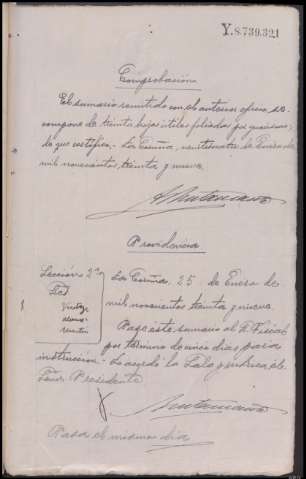 Y.8.739.321
Comprobación
El sumario remitido con el anterior oficio, se
compone de treinta hojas útiles foliadas por
de que certifico.- La Coruña, veinticuatro de Enero de
mil novecientos treinta y nueve.
Providencia
Sección 2ª La Coruña 25 de Enero de
mil novecientos treinta y nueve.
Pase este sumario al S. Fiscal
por término de cinco días para
instrucción.- Lo acordó la Sala y rubrica el
Señor Presidente
Pasa el mismo día